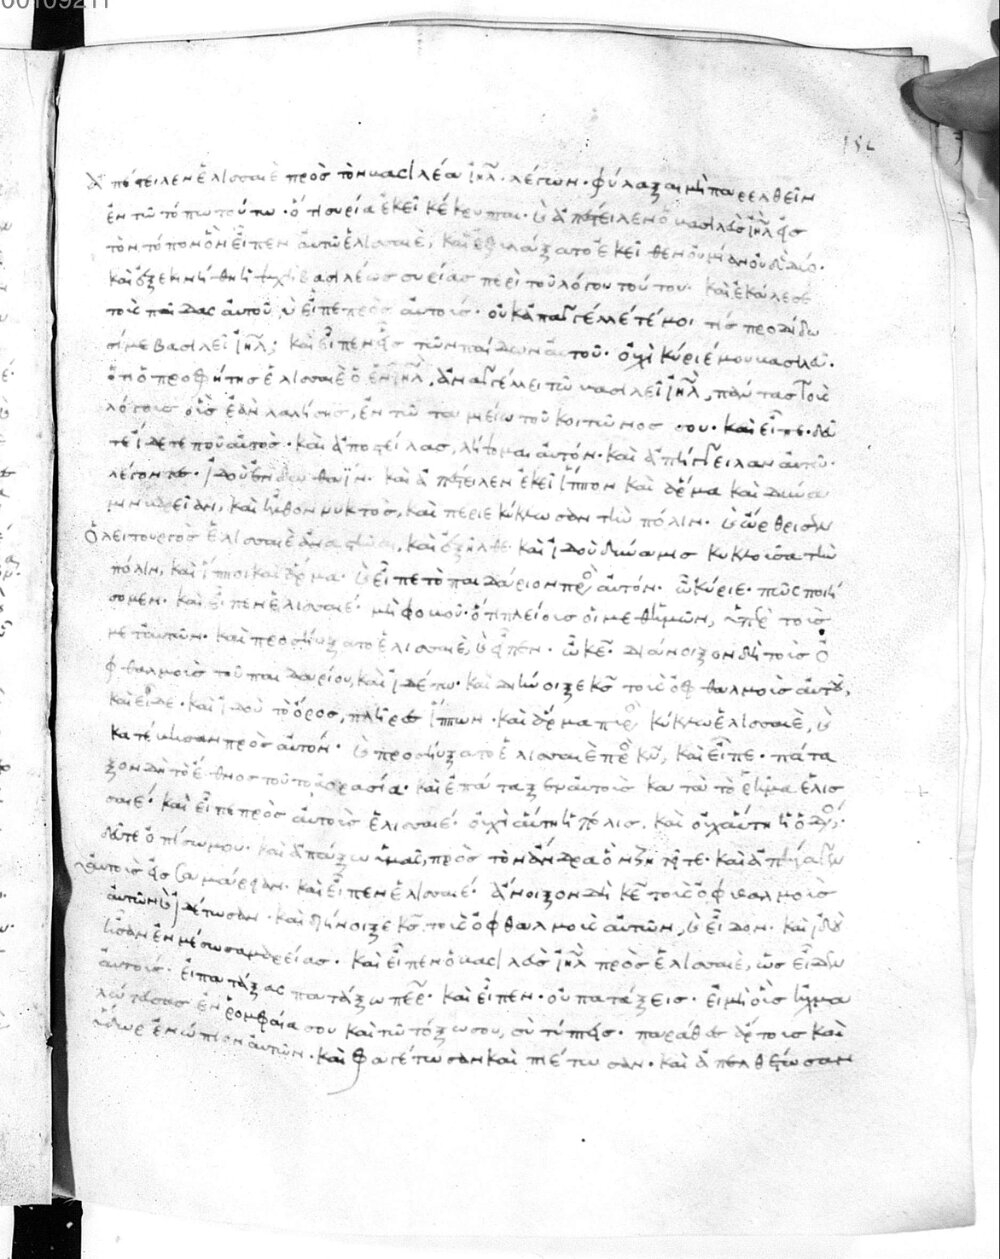 ἀπέστειλεν ἐλισσαιὲ πρὸς τὸν βασιλέα ἰηλ· λέγων· φύλαξαι μὴ παρελθεῖν
ἐν τῶ τόπω τούτω· ὅτι συρία ἐκεῖ κέκρυπται· καὶ ἀπέστειλεν ὁ βασιλεὺς ἰηλ εἰς
τὸν τόπον ὃν εἶπεν αὐτῶ ἐλισσαιὲ, καὶ ἐφυλάξατο ἐκεῖθεν οὐ μίαν οὐδὲ δύο·
καὶ ἐξεκινήθη ἡ ψυχὴ βασιλέως συρίας περὶ τοῦ λόγου τούτου· καὶ ἐκάλεσε
τοὺς παῖδας αὐτοῦ, καὶ εἶπε πρὸς αὐτούς· οὐκ ἀπαγγέλλετέ μοι τίς προδίδω
σί με βασιλεῖ ἰηλ; καὶ εἶπεν εἷς τῶν παίδων αὐτοῦ· οὐχὶ κύριέ μου βασιλεῦ·
ὅτι ὁ προφήτης ἐλισσαιὲ ὁ ἐν ἰηλ, ἀναγγέλλει τῶ βασιλεῖ ἰηλ, πάντας τοὺς
λόγους οὓς ἐὰν λαλήσης, ἐν τῶ ταμιείω τοῦ κοιτῶνος σου· καὶ εἶπε· δεῦ
τε ἴδετε ποῦ αὐτὸς· καὶ ἀποστείλας, λήψομαι αὐτόν· καὶ ἀπήγγειλαν αὐτῶ·
λέγοντες· ἰδοὺ ἐν δωθαΐν· καὶ ἀπέστειλεν ἐκεῖ ἵππον καὶ ἅρμα καὶ δύνα
μιν βαρεῖαν, καὶ ἦλθον νυκτὸς, καὶ περιεκύκλωσαν τὴν πόλιν· καὶ ὤρθρισεν
ὁ λειτουργὸς ἐλισσαιὲ ἀναστῆναι, καὶ ἐξῆλθε· καὶ ἰδοὺ δύναμις κυκλοῦσα τὴν
πόλιν, καὶ ἵπποι καὶ ἅρμα· καὶ εἶπε τὸ παιδάριον πρὸς αὐτόν· ὦ κύριε· πῶς ποιή
σομεν· καὶ εἶπεν ἐλισσαιέ· μὴ φοβοῦ· ὅτι πλείους οἱ μεθ' ἡμῶν, ὑπὲρ τοὺς
μετ' αὐτῶν· καὶ προσηύξατο ἐλισσαιὲ, καὶ εἶπεν· ὦ κε· διάνοιξον δὴ τοὺς ὀ
φθαλμοὺς τοῦ παιδαρίου, καὶ ἰδέτω· καὶ διήνοιξε κς τοὺς ὀφθαλμοὺς αὐτοῦ,
καὶ εἶδε· καὶ ἰδοὺ τὸ ὄρος, πλῆρες ἵππων· καὶ ἅρμα πυρὸς κύκλω ἐλισσαιὲ, καὶ
κατέβησαν πρὸς αὐτόν· καὶ προσηύξατο ἐλισσαιὲ πρὸς κν, καὶ εἶπε· πάτα
ξον δὴ τὸ ἔθνος τοῦτο ἀορασία· καὶ ἐπάταξεν αὐτοὺς κατὰ τὸ ῥῆμα ἐλισ
σαιέ· καὶ εἶπε πρὸς αὐτοὺς ἐλισσαιέ· οὐχὶ αὕτη ἡ πόλις· καὶ οὐχ αὕτη ἡ ὁδός·
δεῦτε ὀπίσω μου· καὶ ἀπάξω ὑμᾶς, πρὸς τὸν ἄνδρα ὃν ζητεῖτε· καὶ ἀπήγαγεν
αὐτοὺς εἰς σαμάρειαν· καὶ εἶπεν ἐλισσαιέ· ἄνοιξον δὴ κε τοὺς ὀφθαλμοὺς
αὐτῶν καὶ ἰδέτωσαν· καὶ διήνοιξε κς τοὺς ὀφθαλμοὺς αὐτῶν, καὶ εἶδον· καὶ ἰδοὺ
ἦσαν ἐν μέσω σαμαρείας· καὶ εἶπεν ὁ βασιλεὺς ἰηλ πρὸς ἐλισσαιὲ, ὡς εἶδεν
αὐτούς· εἰ πατάξας πατάξω περ· καὶ εἶπεν· οὐ πατάξεις· εἰ μὴ οὓς ἠχμα
λώτευσας ἐν ῥομφαία σου καὶ τῶ τόξω σου, σὺ τύπτεις· παράθες ἄρτους καὶ
ὕδωρ ἐνώπιον αὐτῶν· καὶ φαγέτωσαν καὶ πιέτωσαν· καὶ ἀπελθέτωσαν